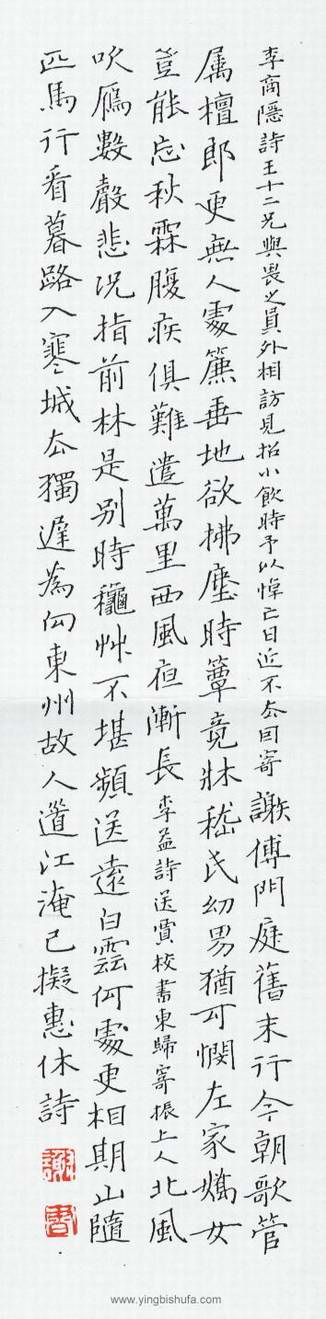 李商隱詩王十二兄與畏之員外相訪見招小飲時予以悼亡日近不去因寄 謝傅門庭舊末行今朝歌管
属檀郎更無人處簾垂地欲拂塵時簟竟牀嵇氏幼男猶可憫左家嬌女
豈能忘秋霖腹疾俱難遣萬里西風夜漸長 李益詩送賈校書東歸寄振上人 北風
吹鴈數聲悲況指前林是别時穐艸不堪頻送遠白雲何處更相期山隨
匹馬行看暮路入寒城去獨遲為向東州故人道江淹已擬惠休詩
www.yingbishufa.com